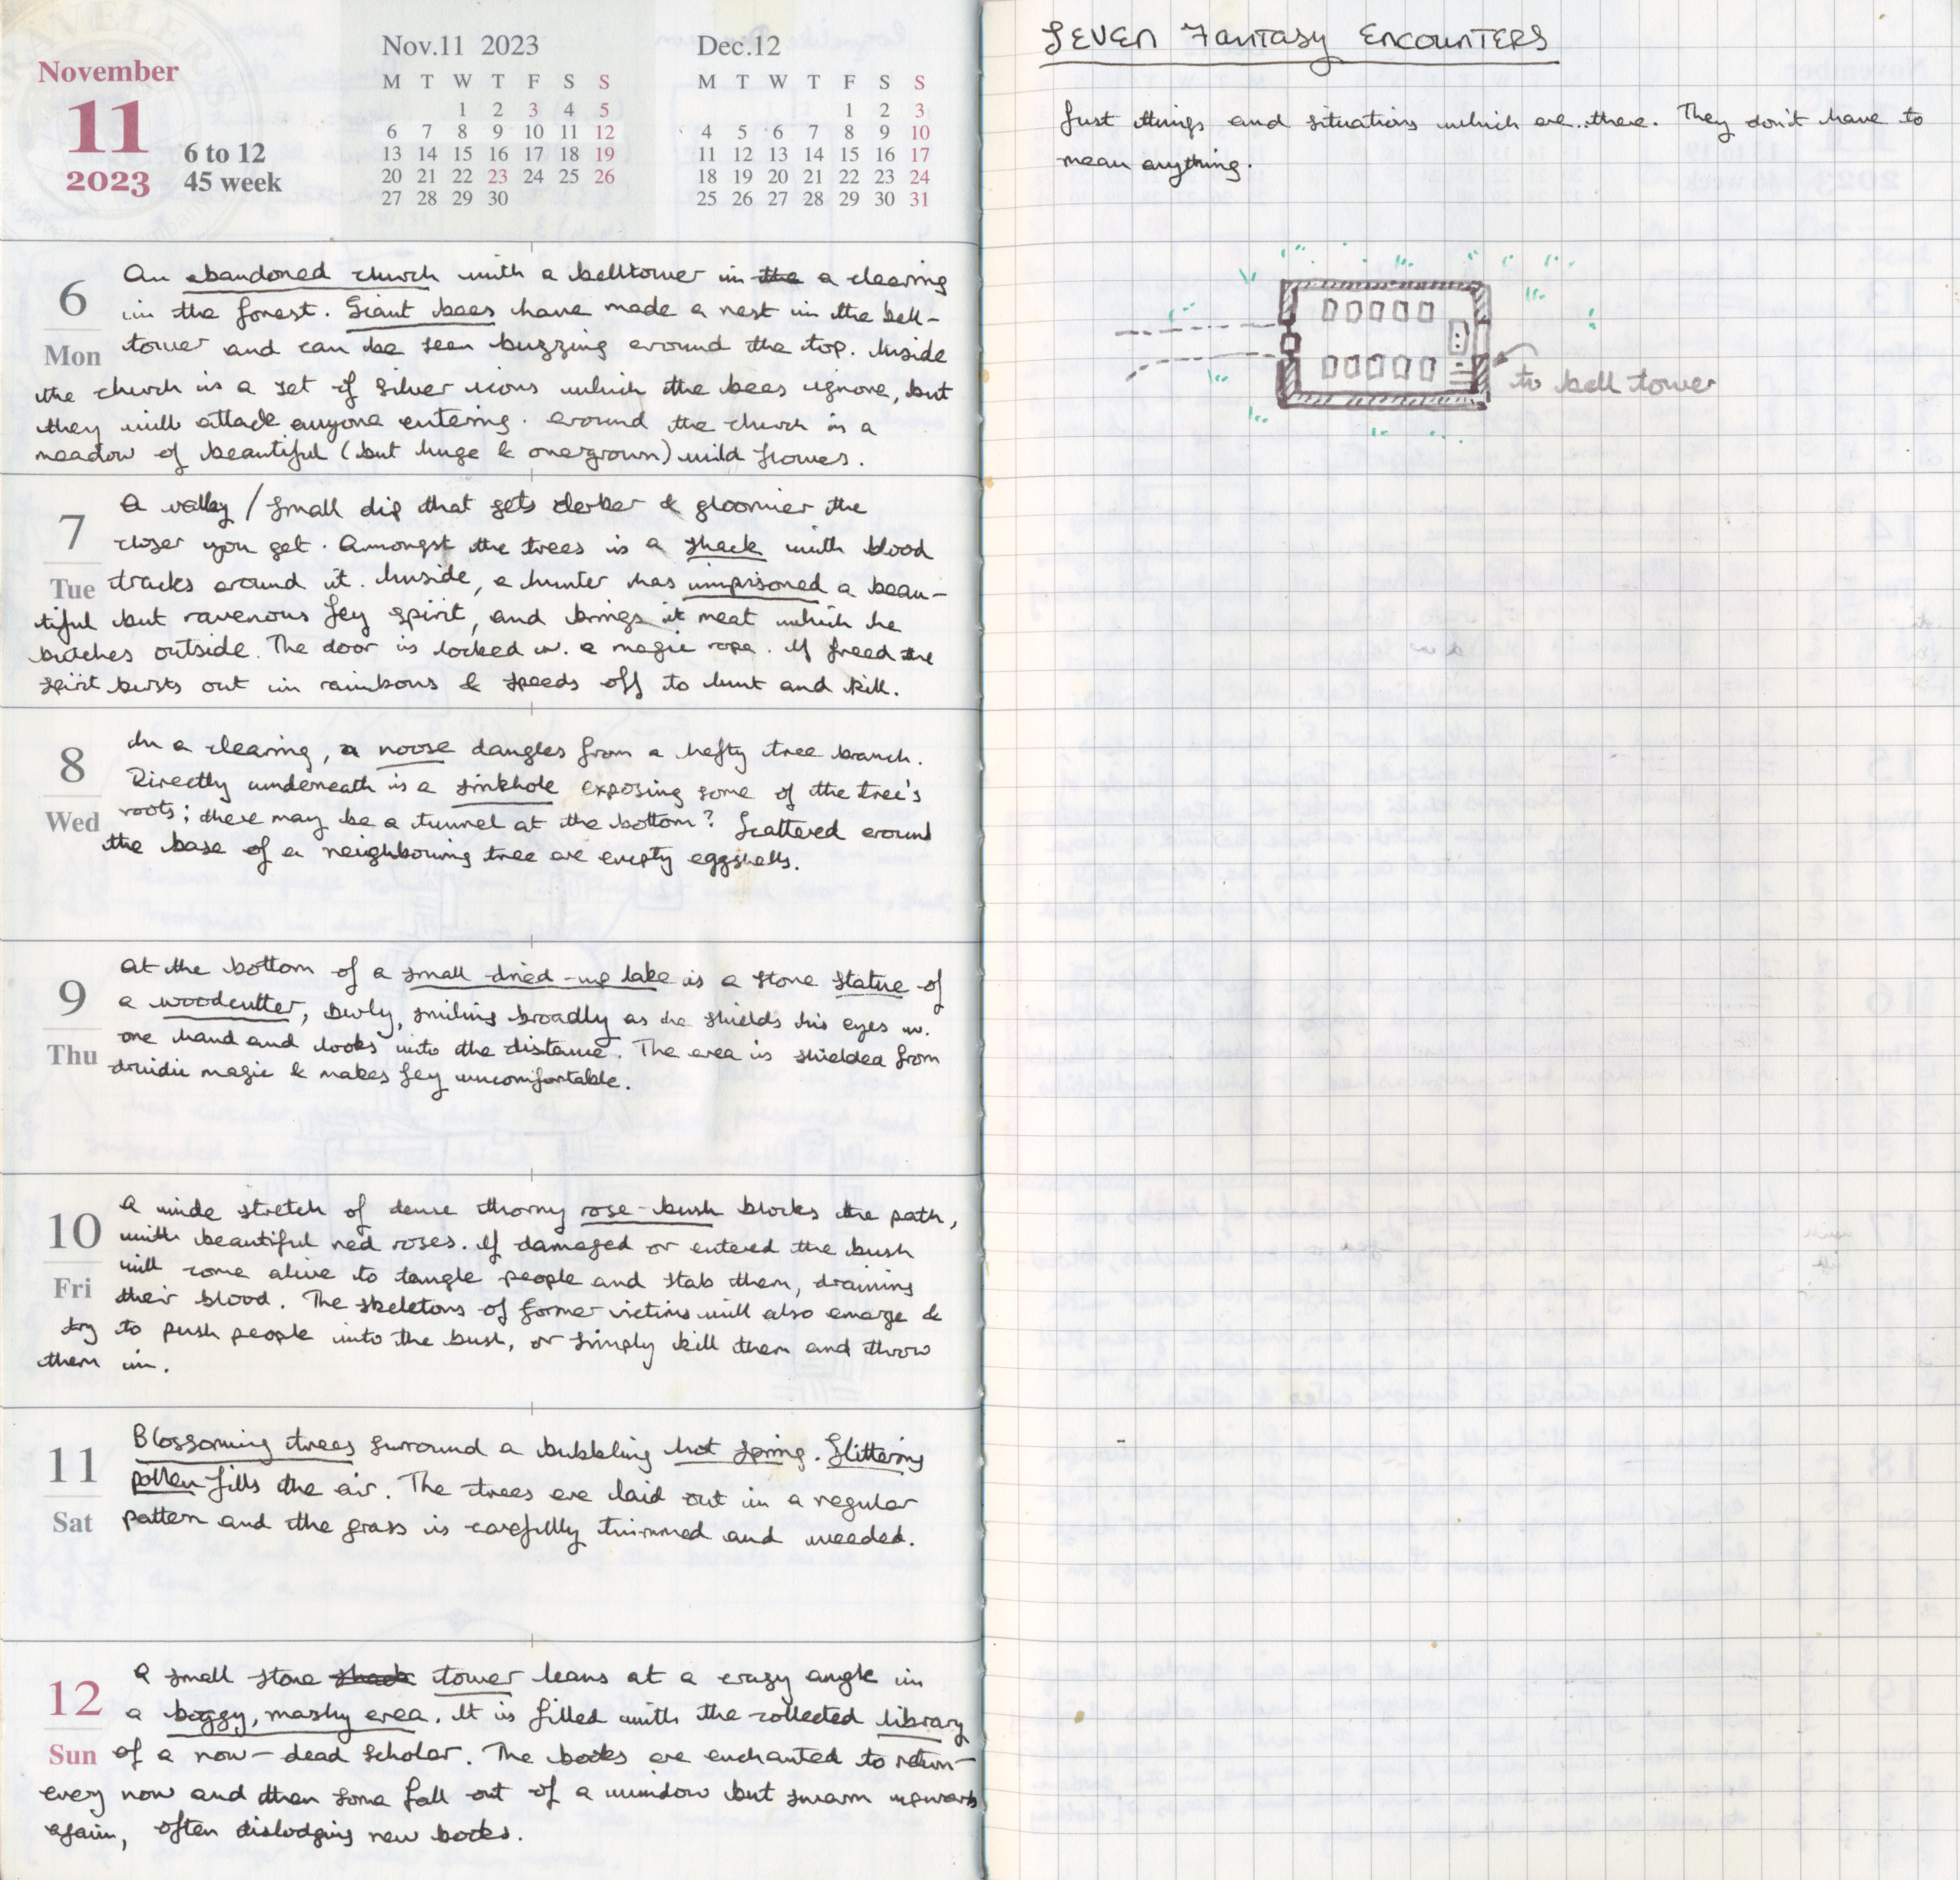 November
11
2023
6 to 12
45 week
Nov.11 2023
M T W T F S S
1 2 3 4 5
6 7 8 9 10 11 12
13 14 15 16 17 18 19
20 21 22 23 24 25 26
27 28 29 30
Dec.12
M T W T F S S
1 2 3
4 5 6 7 8 9 10
11 12 13 14 15 16 17
18 19 20 21 22 23 24
25 26 27 28 29 30 31
6
Mon
An abandoned church with a belltower in the a clearing
in the forest. Giant bees have made a nest in the bell-
tower and can be seen buzzing around the top. Inside
the church is a set of silver icons which the bees ignore, but
they will attack anyone entering. around the church is a
meadow of beautiful (but huge & overgrown) wild flowers.
7
Tue
A valley / small dip that gets darker & gloomier the
closer you get. Amongst the trees is a shack with blood
tracks around it. Inside, a hunter has imprisoned a beau-
tiful but ravenous fey spirit, and brings it meat which he
butches outside. The door is locked w. a magic rope. If freed the
spirit bursts out in rainbows & speeds off to hunt and kill.
8
Wed
In a clearing, a noose dangles from a hefty tree branch.
Directly underneath is a sinkhole exposing some of the tree's
roots; there may be a tunnel at the bottom? Scattered around
the base of a neighbouring tree are empty eggshells.
9
Thu
At the bottom of a small dried-up lake is a stone statue of
a woodcutter, burly, smiling broadly as he shields his eyes w.
one hand and looks into the distance. The area is shielded from
druidic magic & makes fey uncomfortable.
10
Fri
A wide stretch of dense thorny rose-bush blocks the path,
with beautiful red roses. If damaged or entered the bush
will come alive to tangle people and stab them, draining
their blood. The skeletons of former victims will also emerge &
try to push people into the bush, or simply kill them and throw
them in.
11
Sat
Blossoming trees surround a bubbling hot spring. Glittering
pollen fills the air. The trees are laid out in a regular
pattern and the grass is carefully trimmed and weeded.
12
Sun
A small stone shack tower leans at a crazy angle in
a boggy, marshy area. It is filled with the collected library
of a now-dead scholar. The books are enchanted to return-
every now and then some fall out of a window but swarm upwards
again, often dislodging new books.
SEVEN FANTASY ENCOUNTERS
Just things and situations which are...there. They don't have to
mean anything.
to bell tower